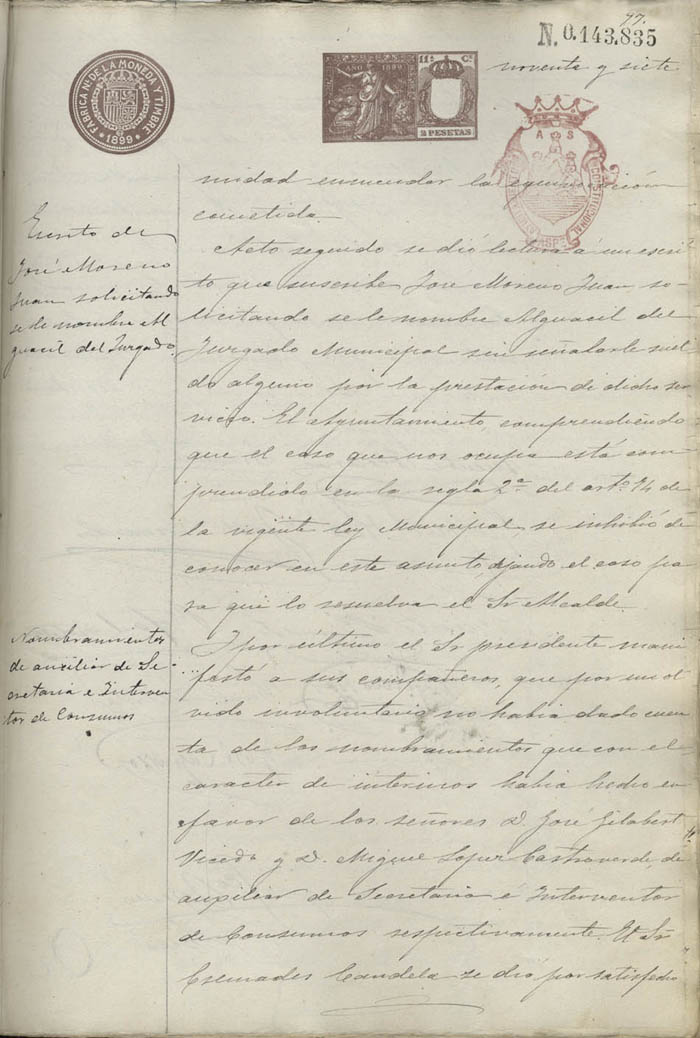 77.
N. 0.143.835
FABRICA Nal. DE LA MONEDA Y TIMBRE
1899
AÑO 1899
11ª Cº
2 PESETAS
noventa y siete
A S
CONSTITUCIONAL
ASPE
nidad enmendar la equivocación
cometida.
Escrito de
José Moreno
Juan solicitando
se le nombre Al
guacil del Juzgado.
Acto seguido se dió lectura á un escri
to que suscribe José Moreno Juan so-
licitando se le nombre Alguacil del
Juzgado Municipal sin señalarle suel
do alguno por la prestación de dicho ser
vicio. El Ayuntamiento, comprendiendo
que el caso que nos ocupa está com-
prendido en la regla 2ª del artº 74 de
la vigente ley Municipal se inhibió de
conocer en este asunto, dejando el caso pa
ra que lo resuelva el Sr Alcalde.
Nombramientos
de auxiliar de Se-
cretaria e Interven
tor de Consumos
Y por último el Sr presidente mani
festó a sus compañeros, que por un ol
vido involuntario no habia dado cuen
ta de los nombramientos que con el
caracter de interinos habia hecho en
favor de los señores D. José Gilabert
Vicedo y D. Miguel Lopez Castroverde, de
auxiliar de Secretaria e Interventor
de Consumos respectivamente. El Sr
Cremades Candela se dió por satisfecho